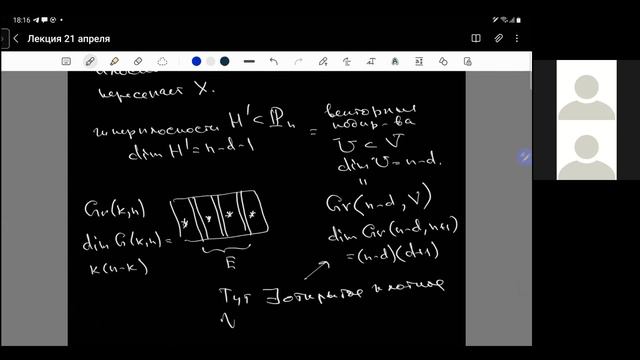 18:16
79%
Лекция 21 апреля
пересекает X.
гиперплоскости H' ⊂ ℙn
dim H' = n-d-1
=
векторные
подпр-ва
U ⊂ V
dim U = n-d.
"
Gr(n-d, V)
dim Gr(n-d, n+1)
=(n-d)(d+1)
Gr(k,n)
dim G(k,n) =
k(n-k)
* * * *
E
Тут ∃ открытое плотное